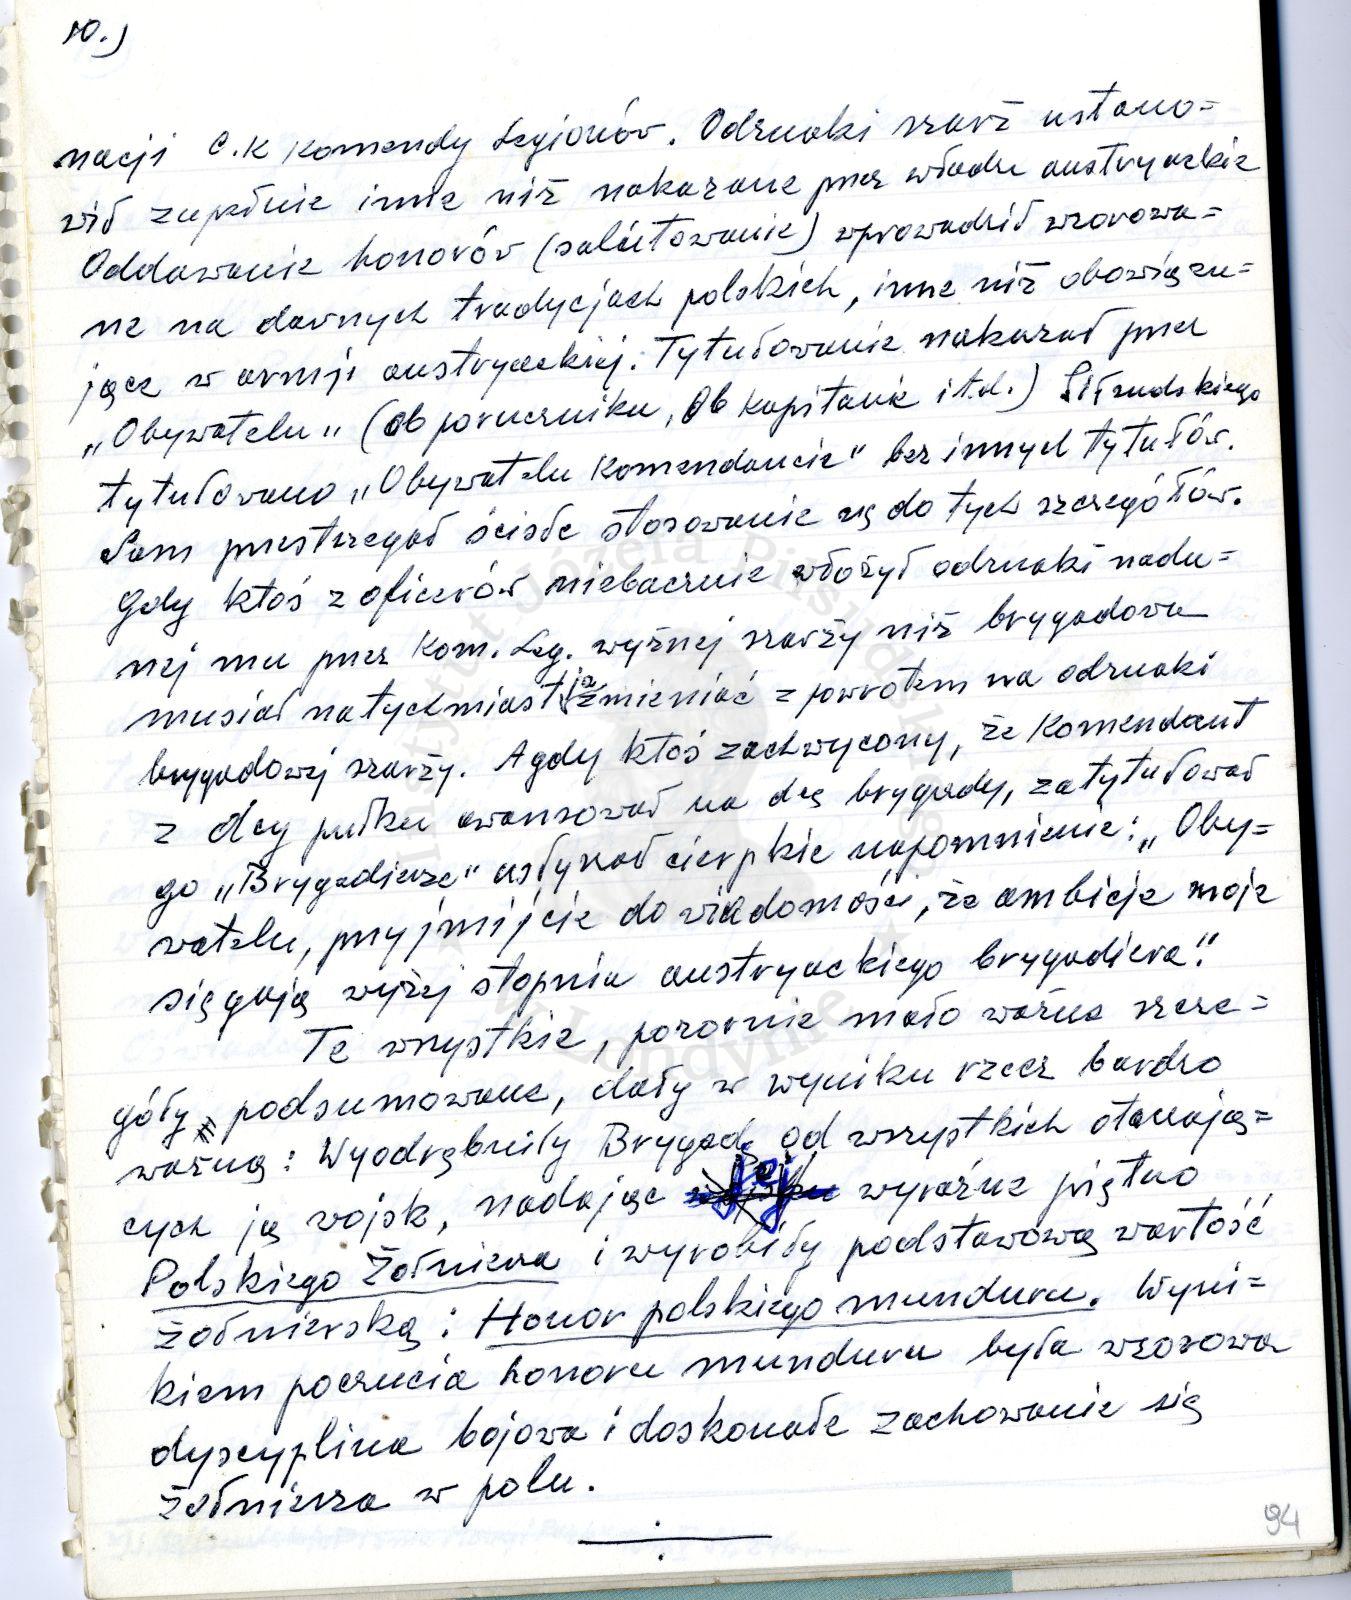 10.)
nacji C.K Komendy Legionów. Odznaki szarż ustano=
wił zupełnie inne niż nakazane przez władze austryackie
Oddawanie honorów (salutowanie) wprowadził wzorowa=
ne na dawnych tradycjach polskich, inne niż obowiązu=
jące w armji austryackiej. Tytułowanie nakazał przez
„Obywatelu" (Ob poruczniku, Ob Kapitanie i t.d.) Piłsudskiego
tytułowano „Obywatelu Komendancie" bez innych tytułów.
Sam przestrzegał ściśle stosowanie się do tych szczegółów.
Gdy ktoś z oficerów niebacznie włożył odznaki nada=
nej mu przez Kom. Leg. wyższej szarży niż brygadowa
musiał natychmiast ją zmieniać z powrotem na odznaki
brygadowej szarży. A gdy ktoś zachwycony, że Komendant
z dcy pułku awansował na dcę brygady, zatytułował
go „Brygadierze" usłyszał cierpkie napomnienie: „Oby=
watelu, przyjmijcie do wiadomości, że ambicje moje
sięgają wyżej stopnia austryackiego brygadiera".
Te wszystkie, pozornie mało ważne szcze=
góły podsumowane, dały w wyniku rzecz bardzo
ważną: Wyodrębniły Brygadę od wszystkich otaczają=
cych ją wojsk, nadając jej wyraźne piętno
Polskiego Żołnierza i wyrobiły podstawową wartość
żołnierską: Honor polskiego munduru. Wyni=
kiem poczucia honoru munduru była wzorowa
dyscyplina bojowa i doskonałe zachowanie się
żołnierza w polu.
94
Instytut Józefa Piłsudskiego
w Londynie